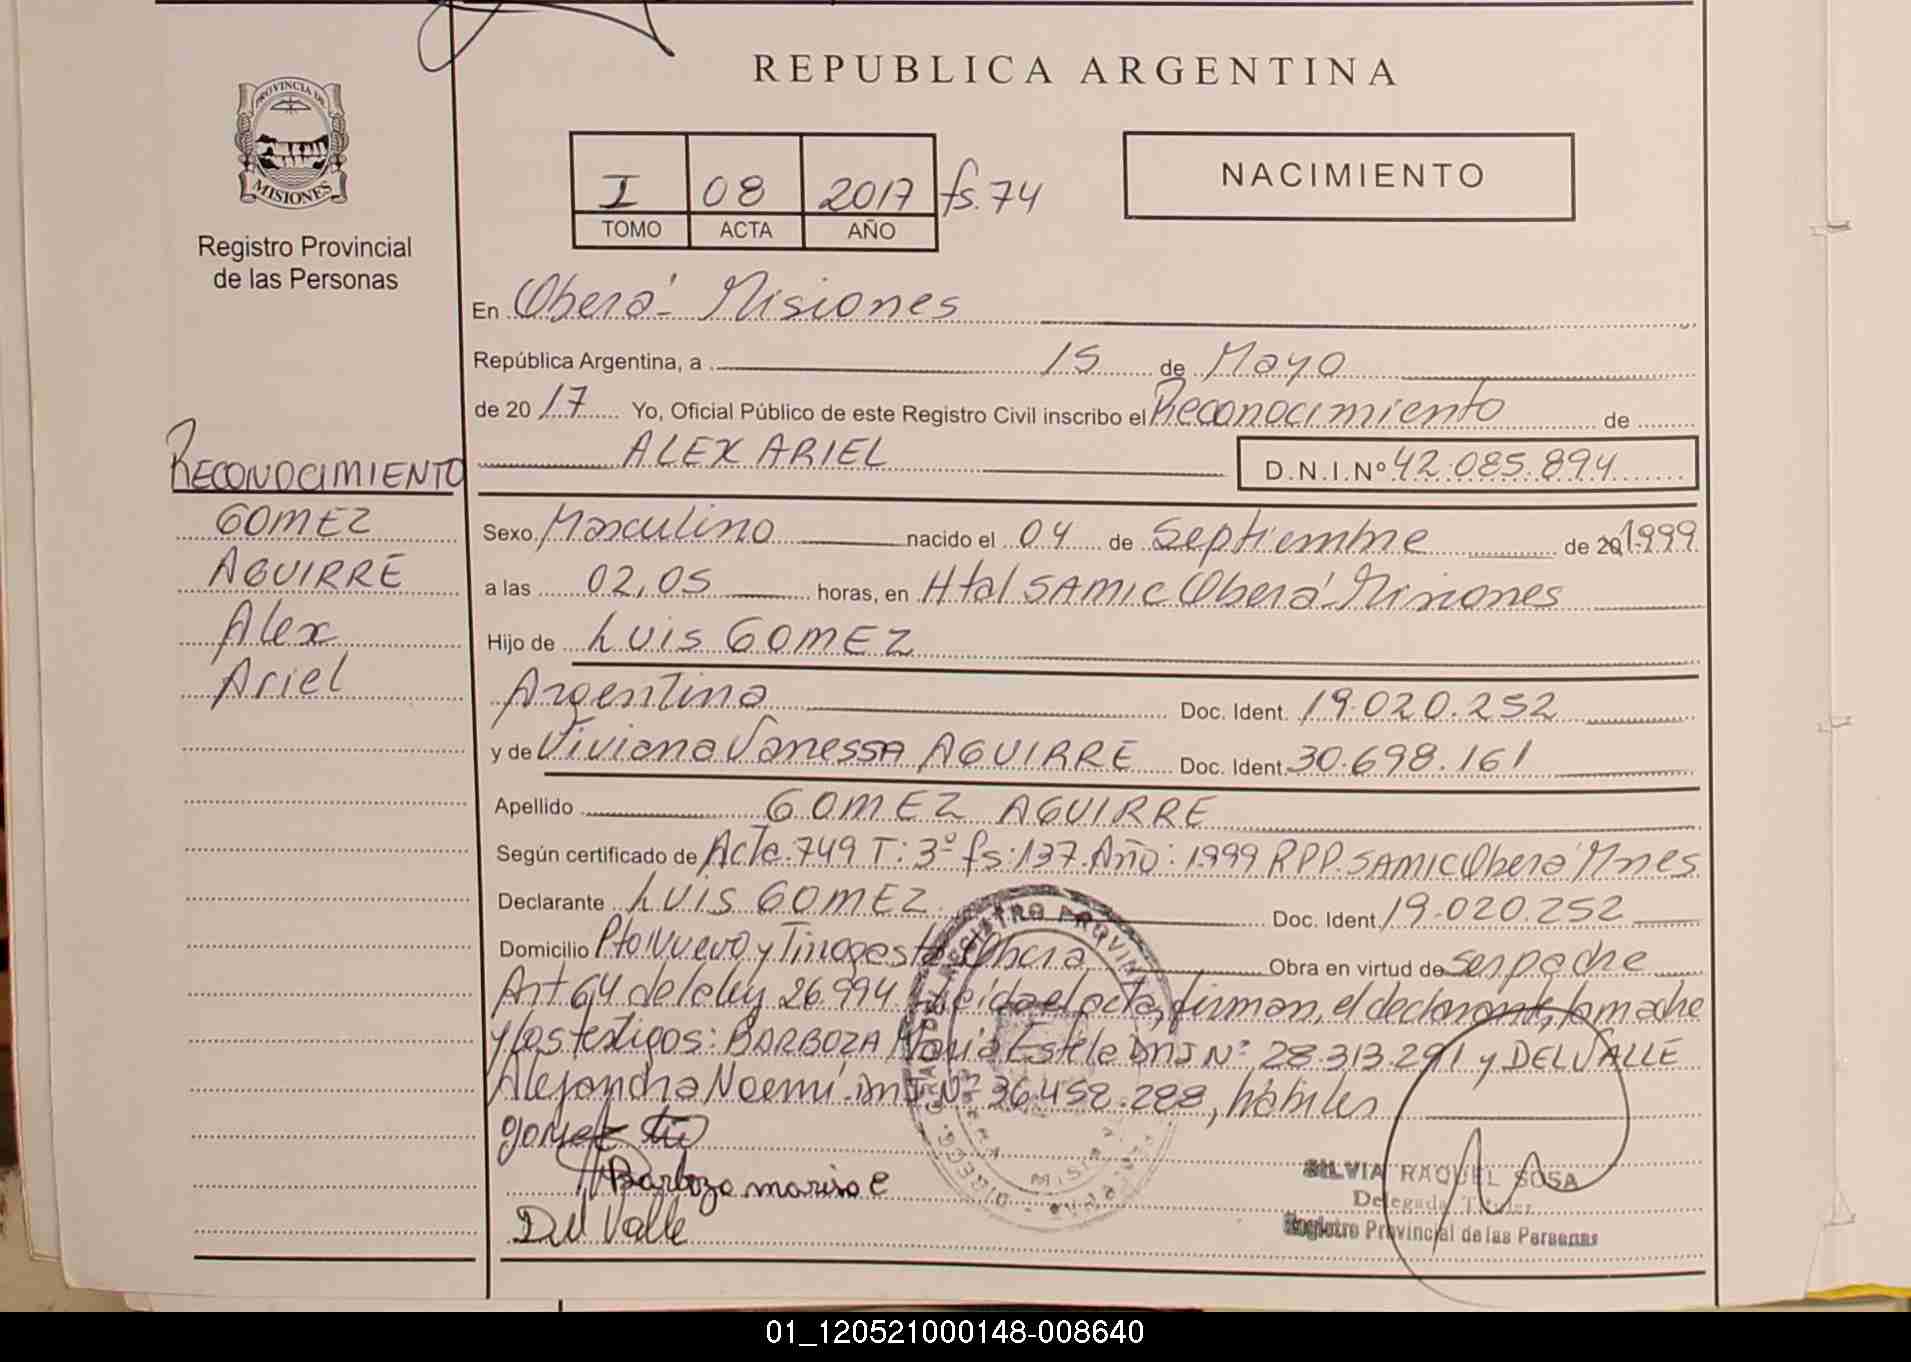 REPUBLICA ARGENTINA
PROVINCIA DE
MISIONES
Registro Provincial
de las Personas
I 08 2017 fs. 74
TOMO ACTA AÑO
NACIMIENTO
En Oberá - Misiones
República Argentina, a 15 de Mayo
de 20 17 Yo, Oficial Público de este Registro Civil inscribo el Reconocimiento de
ALEX ARIEL D.N.I.Nº 42.085.894
RECONOCIMIENTO
GOMEZ
AGUIRRE
Alex
Ariel
Sexo Masculino nacido el 04 de Septiembre de 20 1999
a las 02,05 horas, en Htal SAMIC Oberá - Misiones
Hijo de Luis GOMEZ
Argentina Doc. Ident. 19.020.252
y de Viviana Vanessa AGUIRRE Doc. Ident. 30.698.161
Apellido GOMEZ AGUIRRE
Según certificado de Acta.749 T: 3º fs:137.Año: 1999 RPP.SAMIC Oberá Mnes
Declarante LUIS GOMEZ Doc. Ident 19.020.252
Domicilio Pto Nuevo y Tinogasta Oberá Obra en virtud de ser padre
Art 64 de la ley 26.994 Leida el acta, firman, el declarante, la madre
y los testigos: BARBOZA Maria Estela DNI Nº 28.313.291 y DEL VALLE
Alejandra Noemí. DNI Nº 36.458.288, hábiles
gomez
Barboza
Del Valle
SILVIA RAQUEL SOSA
Delegada Titular
Registro Provincial de las Personas
01_120521000148-008640